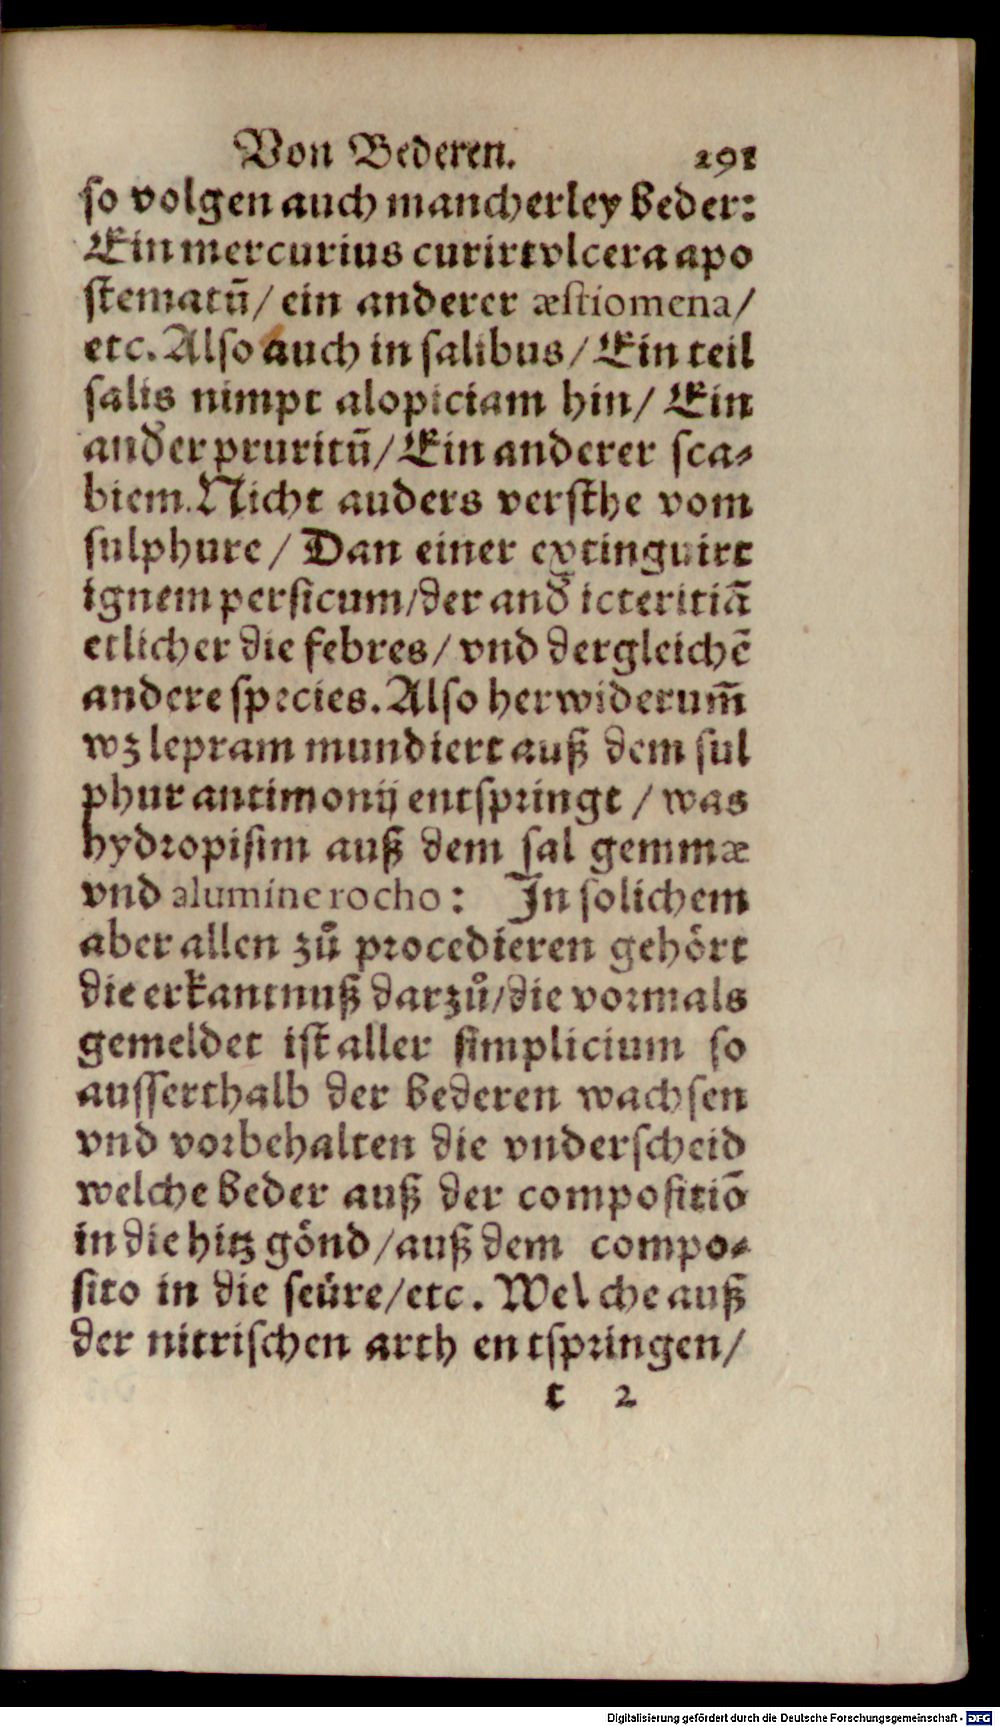 Von Bederen. 291
so volgen auch mancherley beder:
Ein mercurius curirt vlcera apo
stematũ/ ein anderer æstiomena/
etc. Also auch in salibus/ Ein teil
salis nimpt alopiciam hin/ Ein
ander pruritũ/ Ein anderer sca⸗
biem. Nicht auders versthe vom
sulphure/ Dan einer extinguirt
ignem persicum/ der and icteritiã
etlicher die febres/ vnd dergleichẽ
andere species. Also herwiderum̃
wz lepram mundiert auß dem sul
phur antimonij entspringt / was
hydropisim auß dem sal gemmæ
vnd alumine rocho: In solichem
aber allen zů procedieren gehört
die erkantnuß darzů/ die vormals
gemeldet ist aller simplicium so
ausserthalb der bederen wachsen
vnd vorbehalten die vnderscheid
welche beder auß der compositiõ
in die hitz gönd/ auß dem compo⸗
sito in die seüre/ etc. Welche auß
der nitrischen arth entspringen/
t 2
Digitalisierung gefördert durch die Deutsche Forschungsgemeinschaft - DFG